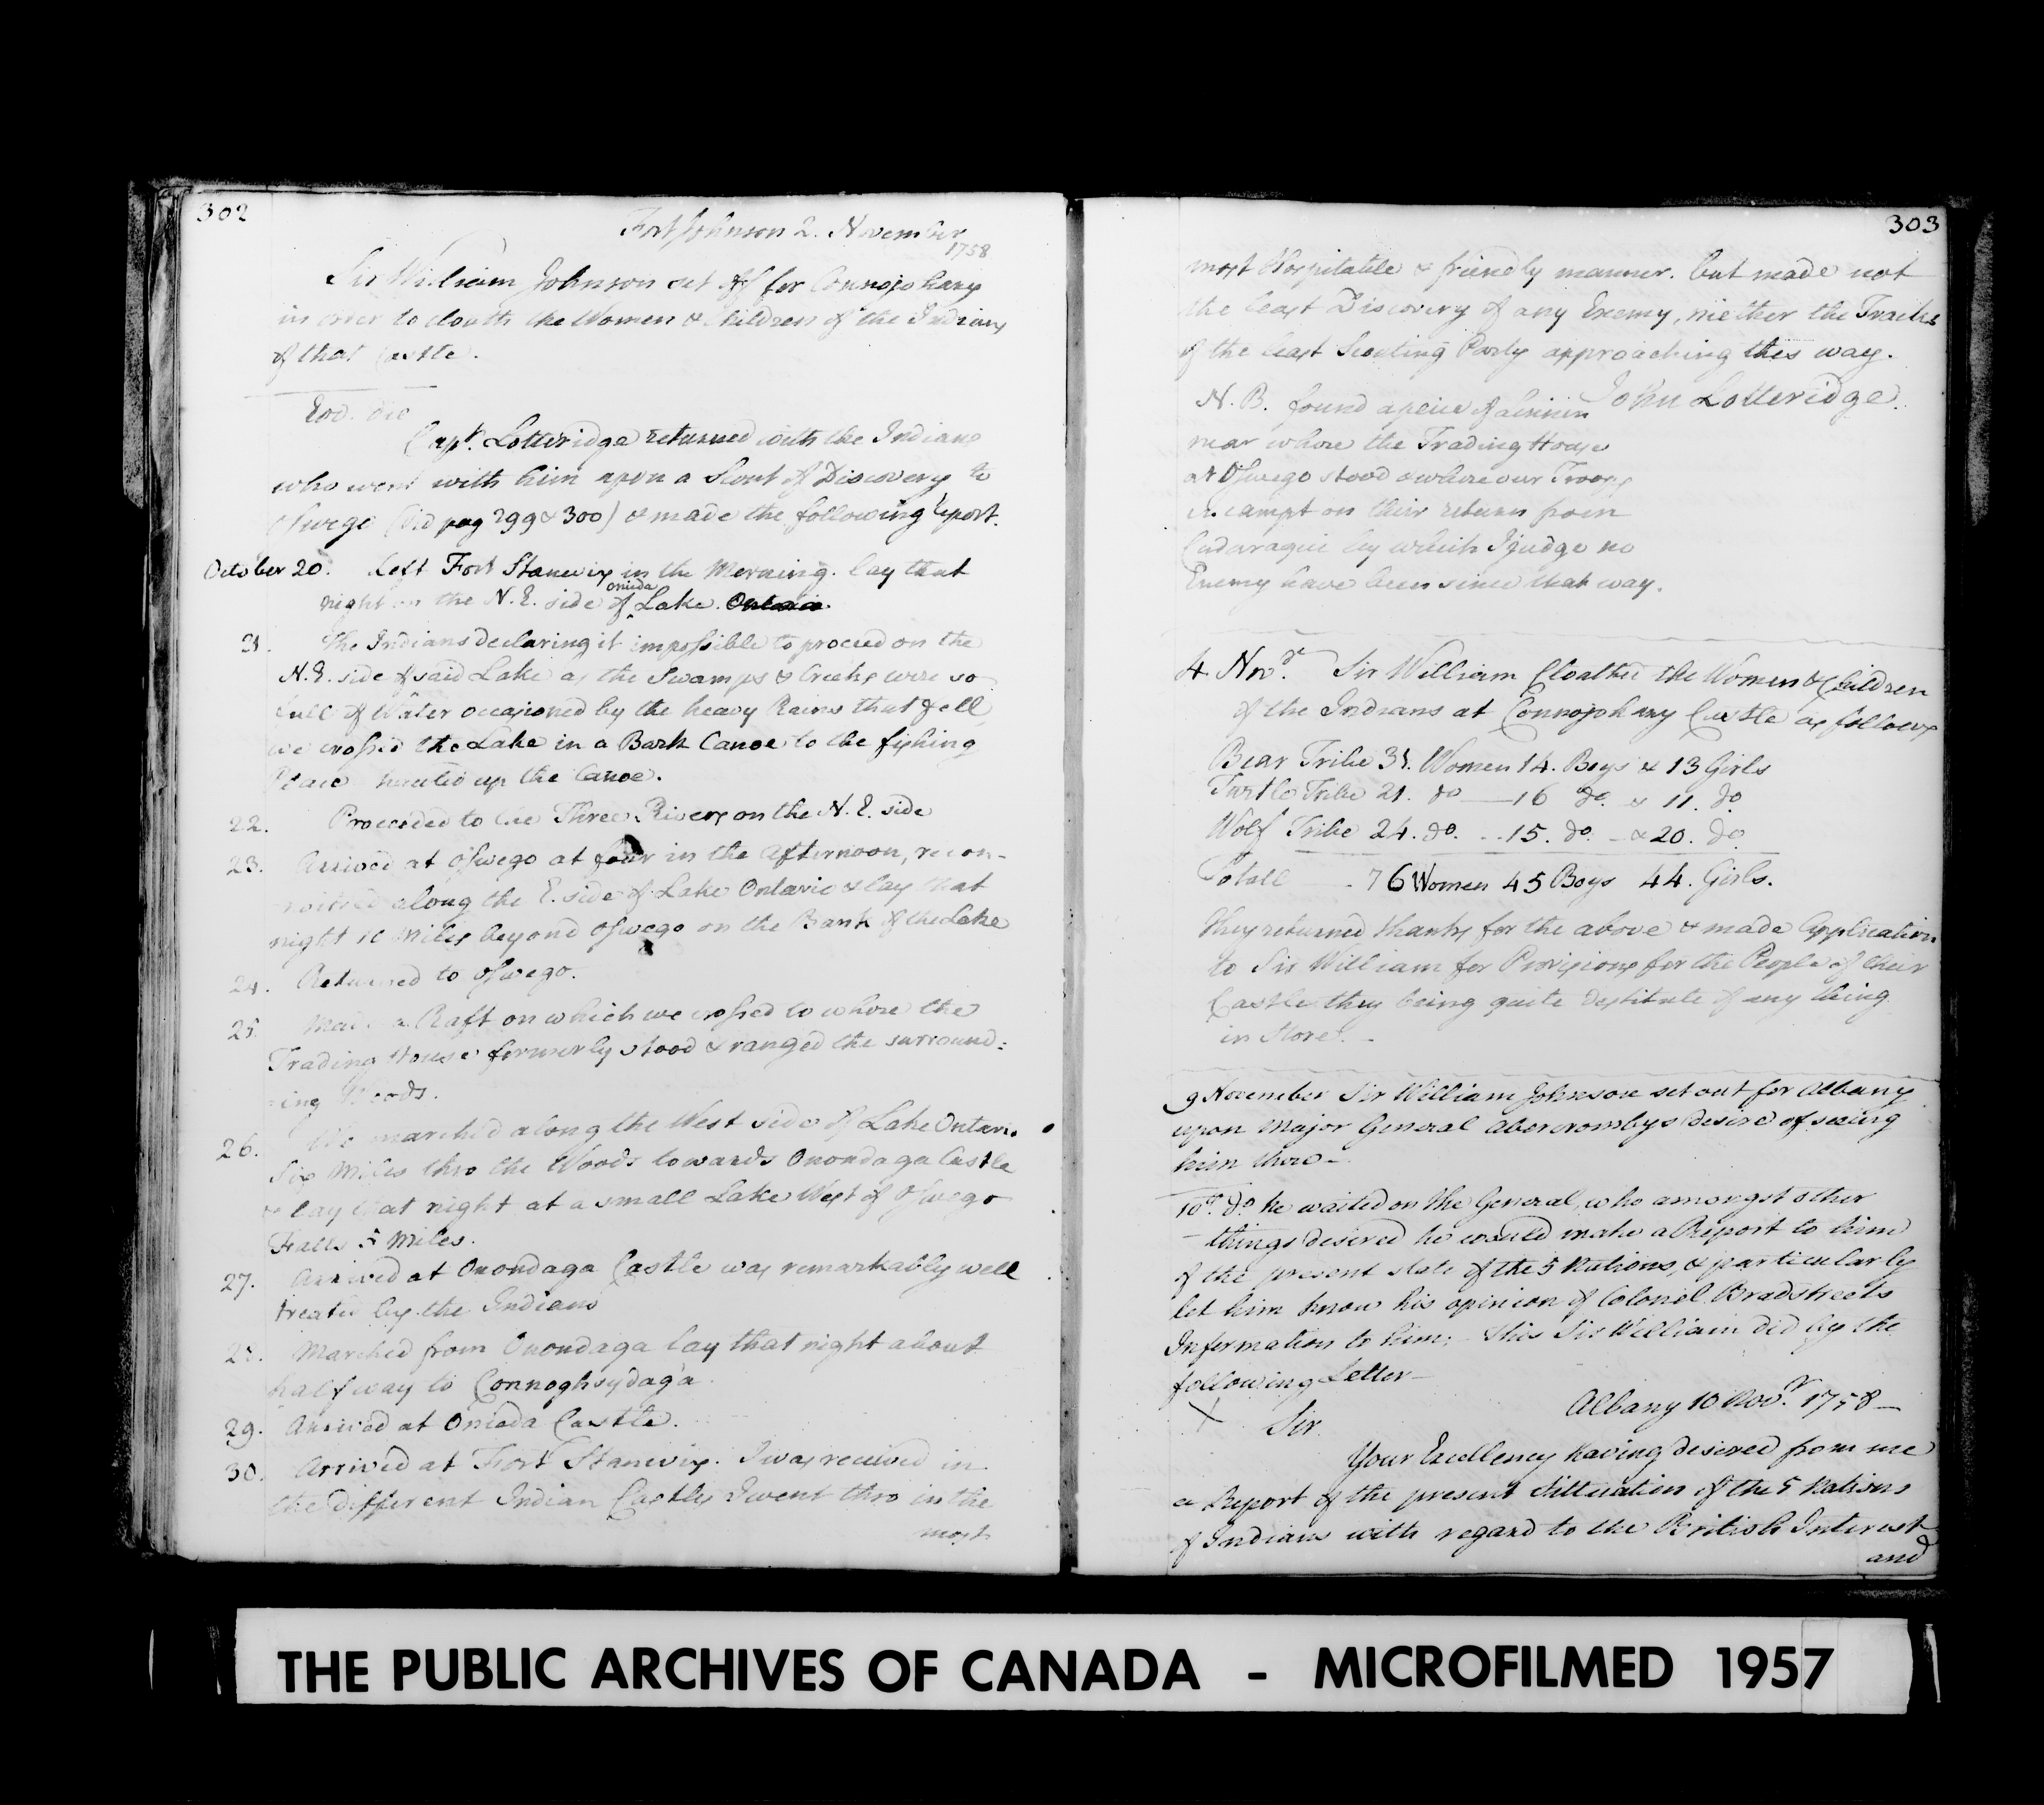 302
Fort Johnson 2. November
1758
Sir William Johnson set off for Connojohary
in order to cloath the Women & Children of the Indians
of that Castle.
Eod. die
Capt. Lotteridge returned with the Indians
who went with him upon a Scout of Discovery to
Oswego (Vid pag 299 & 300) & made the following Report.
October 20. Left Fort Stanwix in the Morning. lay that
night on the N.E. side of Oneida Lake. Ontario
21. The Indians declaring it impossible to proceed on the
N.E. side of said Lake as the Swamps & Creeks were so
full of Water occasioned by the heavy Rains that fell
we crossed the Lake in a Bark Canoe to the fishing
Place hauled up the Canoe.
22. Proceeded to the Three Rivers on the N.E. side
23. Arrived at Oswego at four in the Afternoon, recon-
-noitred along the E. side of Lake Ontario & lay that
night 10 Miles beyond Oswego on the Bank of the Lake
24. Returned to Oswego.
25. Made a Raft on which we crossed to where the
Trading House formerly stood & ranged the surround:
-ing Woods.
26. We marched along the West side of Lake Ontario
Six Miles thro the Woods towards Onondaga Castle
& lay that night at a small Lake West of Oswego
Falls 5 Miles.
27. Arrived at Onondaga Castle was remarkably well
treated by the Indians
28. Marched from Onondaga lay that night about
half way to Connoghsydaga.
29. Arrived at Onieda Castle.
30. Arrived at Fort Stanwix. I was received in
the different Indian Castles I went thro in the
most
303
most Hospitable & friendly manner. but made not
the least Discovery of any Enemy, niether the Tracks
of the least Scouting Party approaching this way.
John Lotteridge.
N.B. found a peice of
near where the Trading House
at Oswego stood & where our Troops
encampt on their return from
Cadaraqui by which I judge no
Enemy have been since that way.
4 Novr. Sir William Cloathed the Women & Children
of the Indians at Connojohary Castle as follows
Bear Tribe 31. Women 14. Boys & 13 Girls
Turtle Tribe 21. do — 16 do. & 11. do
Wolf Tribe 24. do. - 15. do. - & 20. do
Totall - 76 Women 45 Boys 44. Girls.
They returned thanks for the above & made Application
to Sir William for Provisions for the People of their
Castle they being quite destitute of any thing
in Store. -
9 November Sir William Johnson set out for Albany
upon Major General Abercrombys desire of seeing
him there -
10th. do he waited on the General, who amongst other
things desired he would make a Report to him
of the present state of the 5 Nations, & particularly
let him know his opinion of Colonel Bradstreets
Information to him; - this Sir William did by the
following Letter -
Albany 10 Novr. 1758 -
X Sir
Your Excellency having desired from me
a Report of the present Sittuation of the 5 Nations
of Indians with regard to the British Interest
and
THE PUBLIC ARCHIVES OF CANADA - MICROFILMED 1957